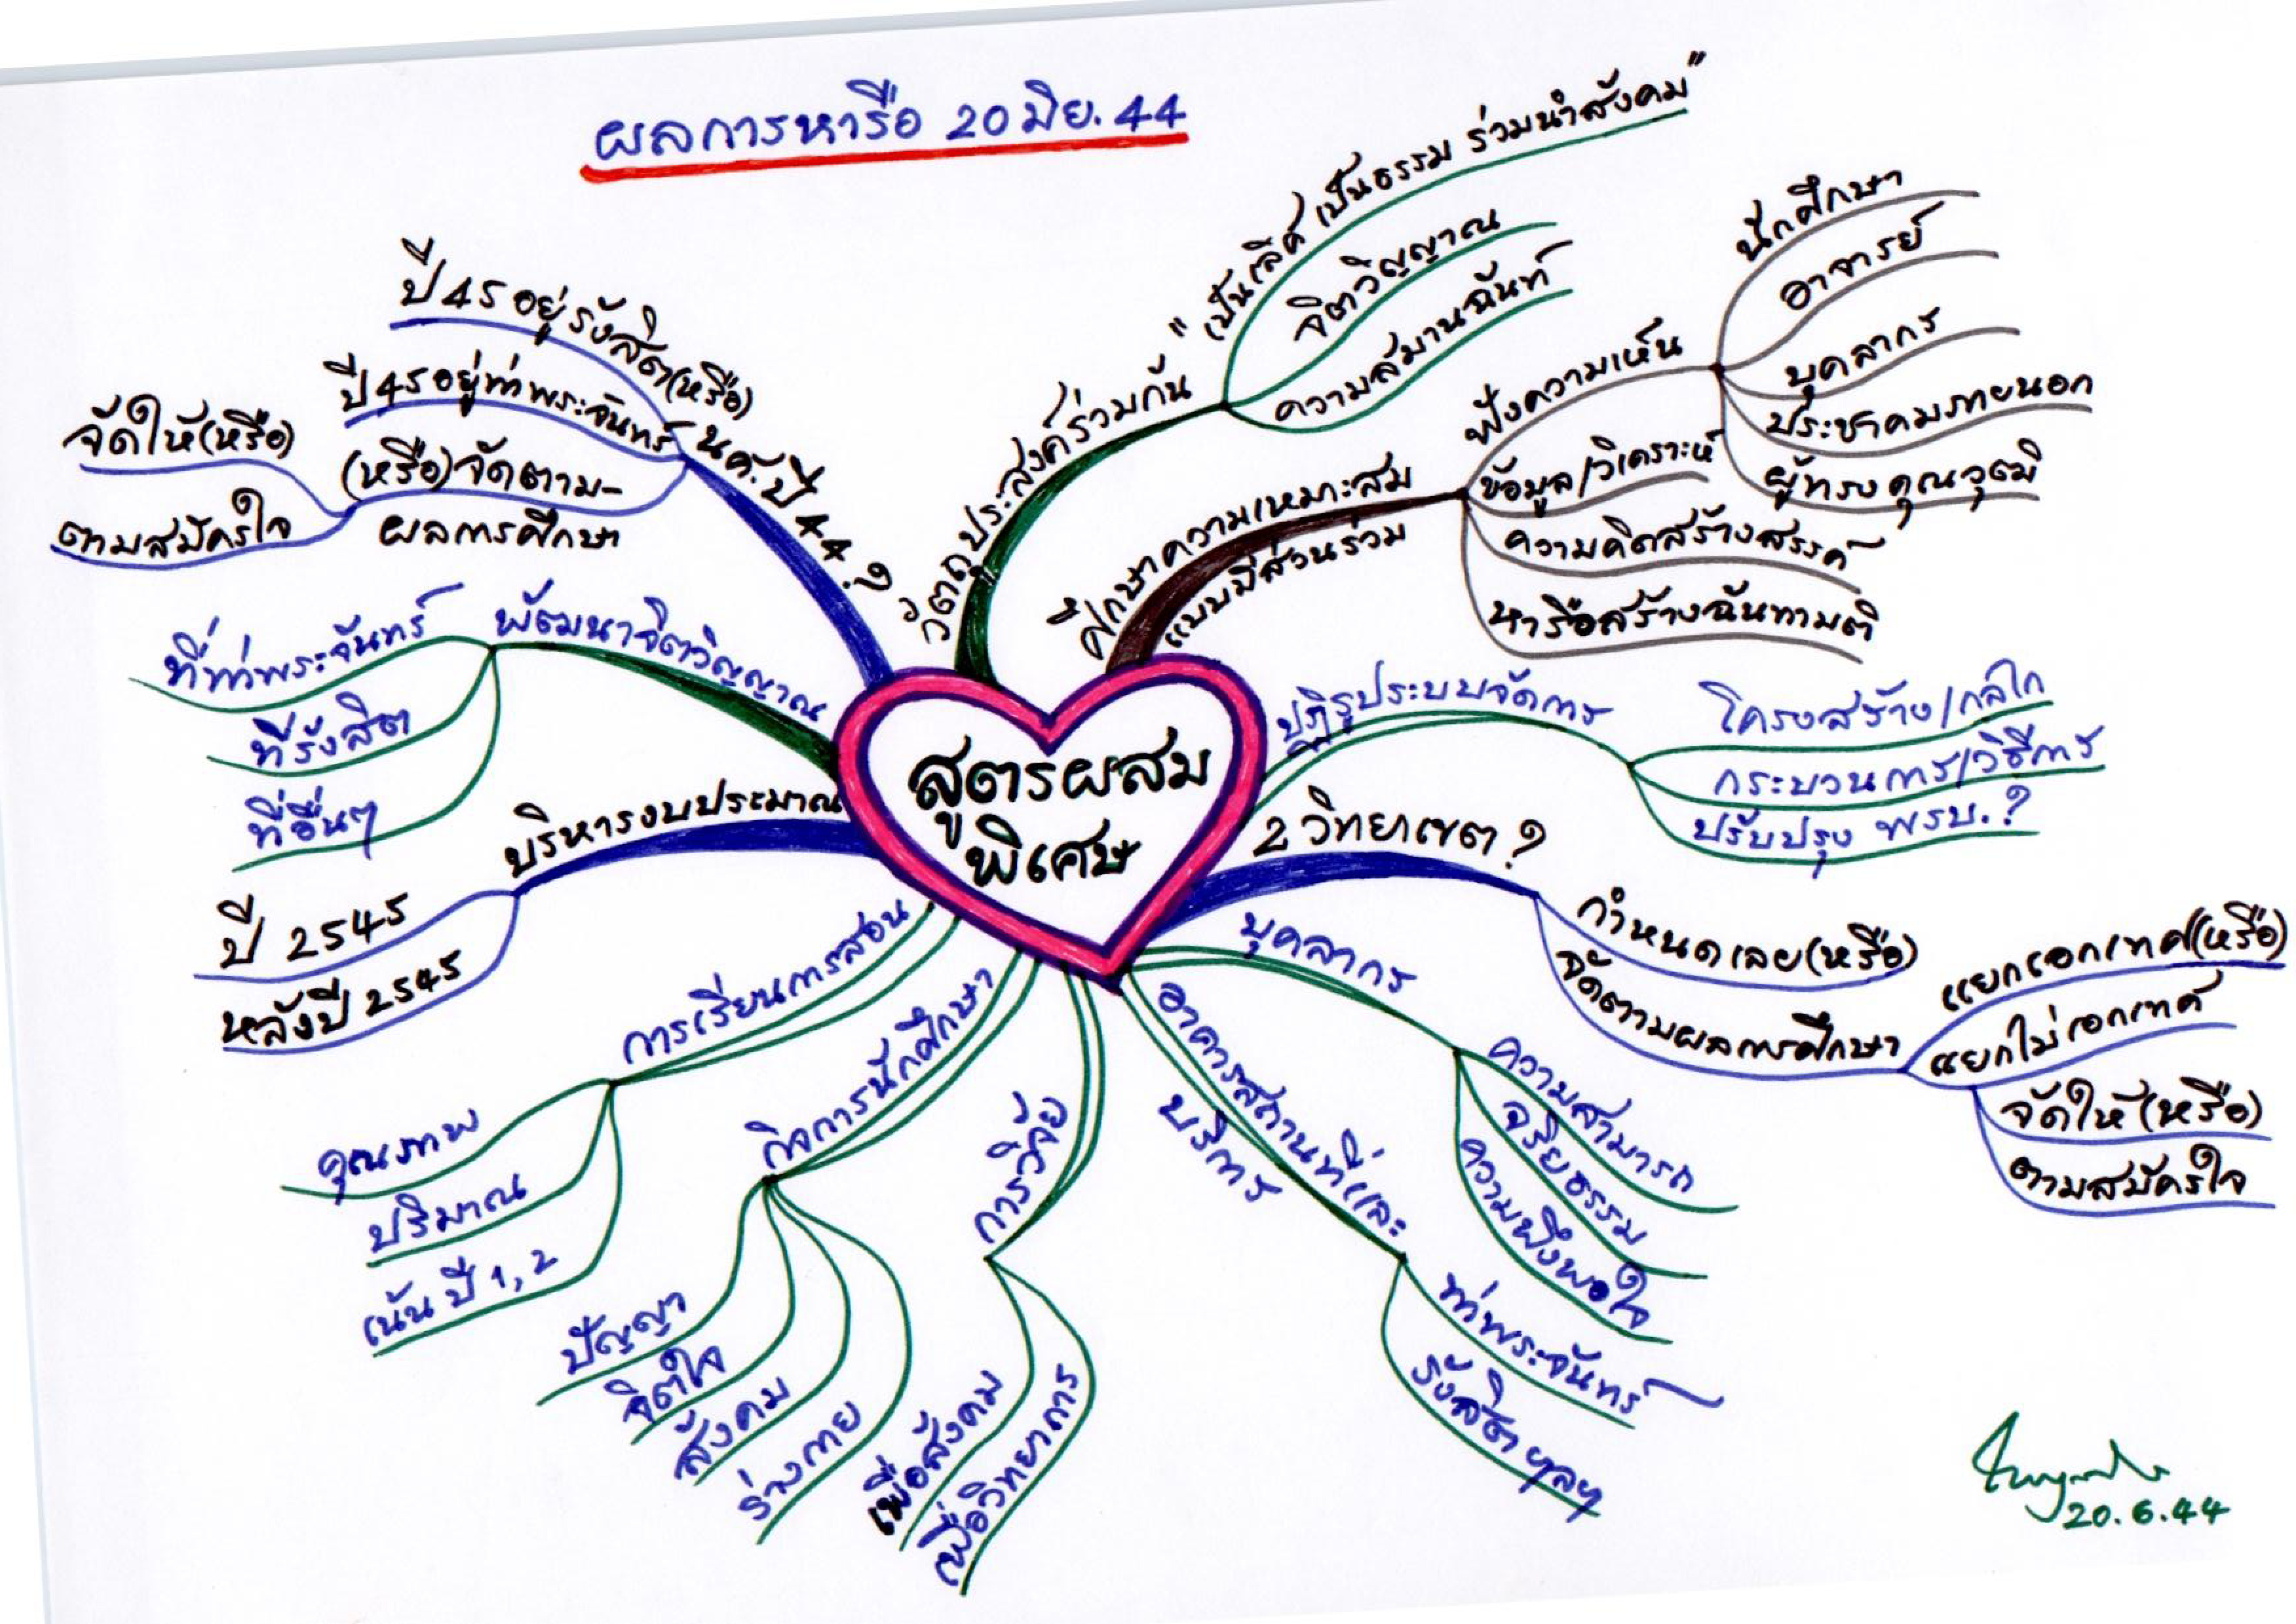 ผลการหารือ 20 มิย. 44
สูตรผสม
พิเศษ
วัตถุประสงค์ร่วมกัน
"เป็นเลิศ เป็นธรรม ร่วมนำสังคม"
จิตวิญญาณ
ความสมานฉันท์
ศึกษาความเหมาะสม
แบบมีส่วนร่วม
ฟังความเห็น
นักศึกษา
อาจารย์
บุคลากร
ประชาคมภายนอก
ผู้ทรงคุณวุฒิ
ข้อมูล/วิเคราะห์
ความคิดสร้างสรรค์
หารือสร้างฉันทามติ
ปฏิรูประบบจัดการ
โครงสร้าง/กลไก
กระบวนการ/วิธีการ
ปรับปรุง พรบ.?
2 วิทยาเขต?
กำหนดเลย(หรือ)
จัดตามผลการศึกษา
แยกเอกเทศ(หรือ)
แยกไม่เอกเทศ
จัดให้(หรือ)
ตามสมัครใจ
บุคลากร
ความสามารถ
จริยธรรม
ความพึงพอใจ
อาคารสถานที่และ
บริการ
ท่าพระจันทร์
รังสิต ฯลฯ
การวิจัย
เพื่อสังคม
เพื่อวิทยาการ
กิจการนักศึกษา
ปัญญา
จิตใจ
สังคม
ร่างกาย
การเรียนการสอน
คุณภาพ
ปริมาณ
เน้นปี 1,2
บริหารงบประมาณ
ปี 2545
หลังปี 2545
พัฒนาจิตวิญญาณ
ที่ท่าพระจันทร์
ที่รังสิต
ที่อื่นๆ
นศ.ปี 44?
ปี 45 อยู่รังสิต(หรือ)
ปี 45 อยู่ท่าพระจันทร์
(หรือ)จัดตาม-
ผลการศึกษา
จัดให้(หรือ)
ตามสมัครใจ
20.6.44